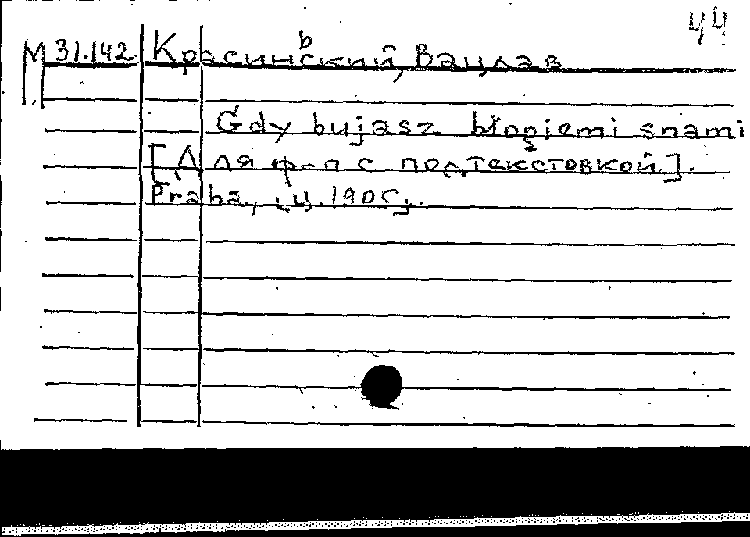 44
М 31.142 Красинський, Вацлав
Gdy bujasz błogiemi snami
[Для ф-п с подтекстовкой].
Praha, ц. 1905.